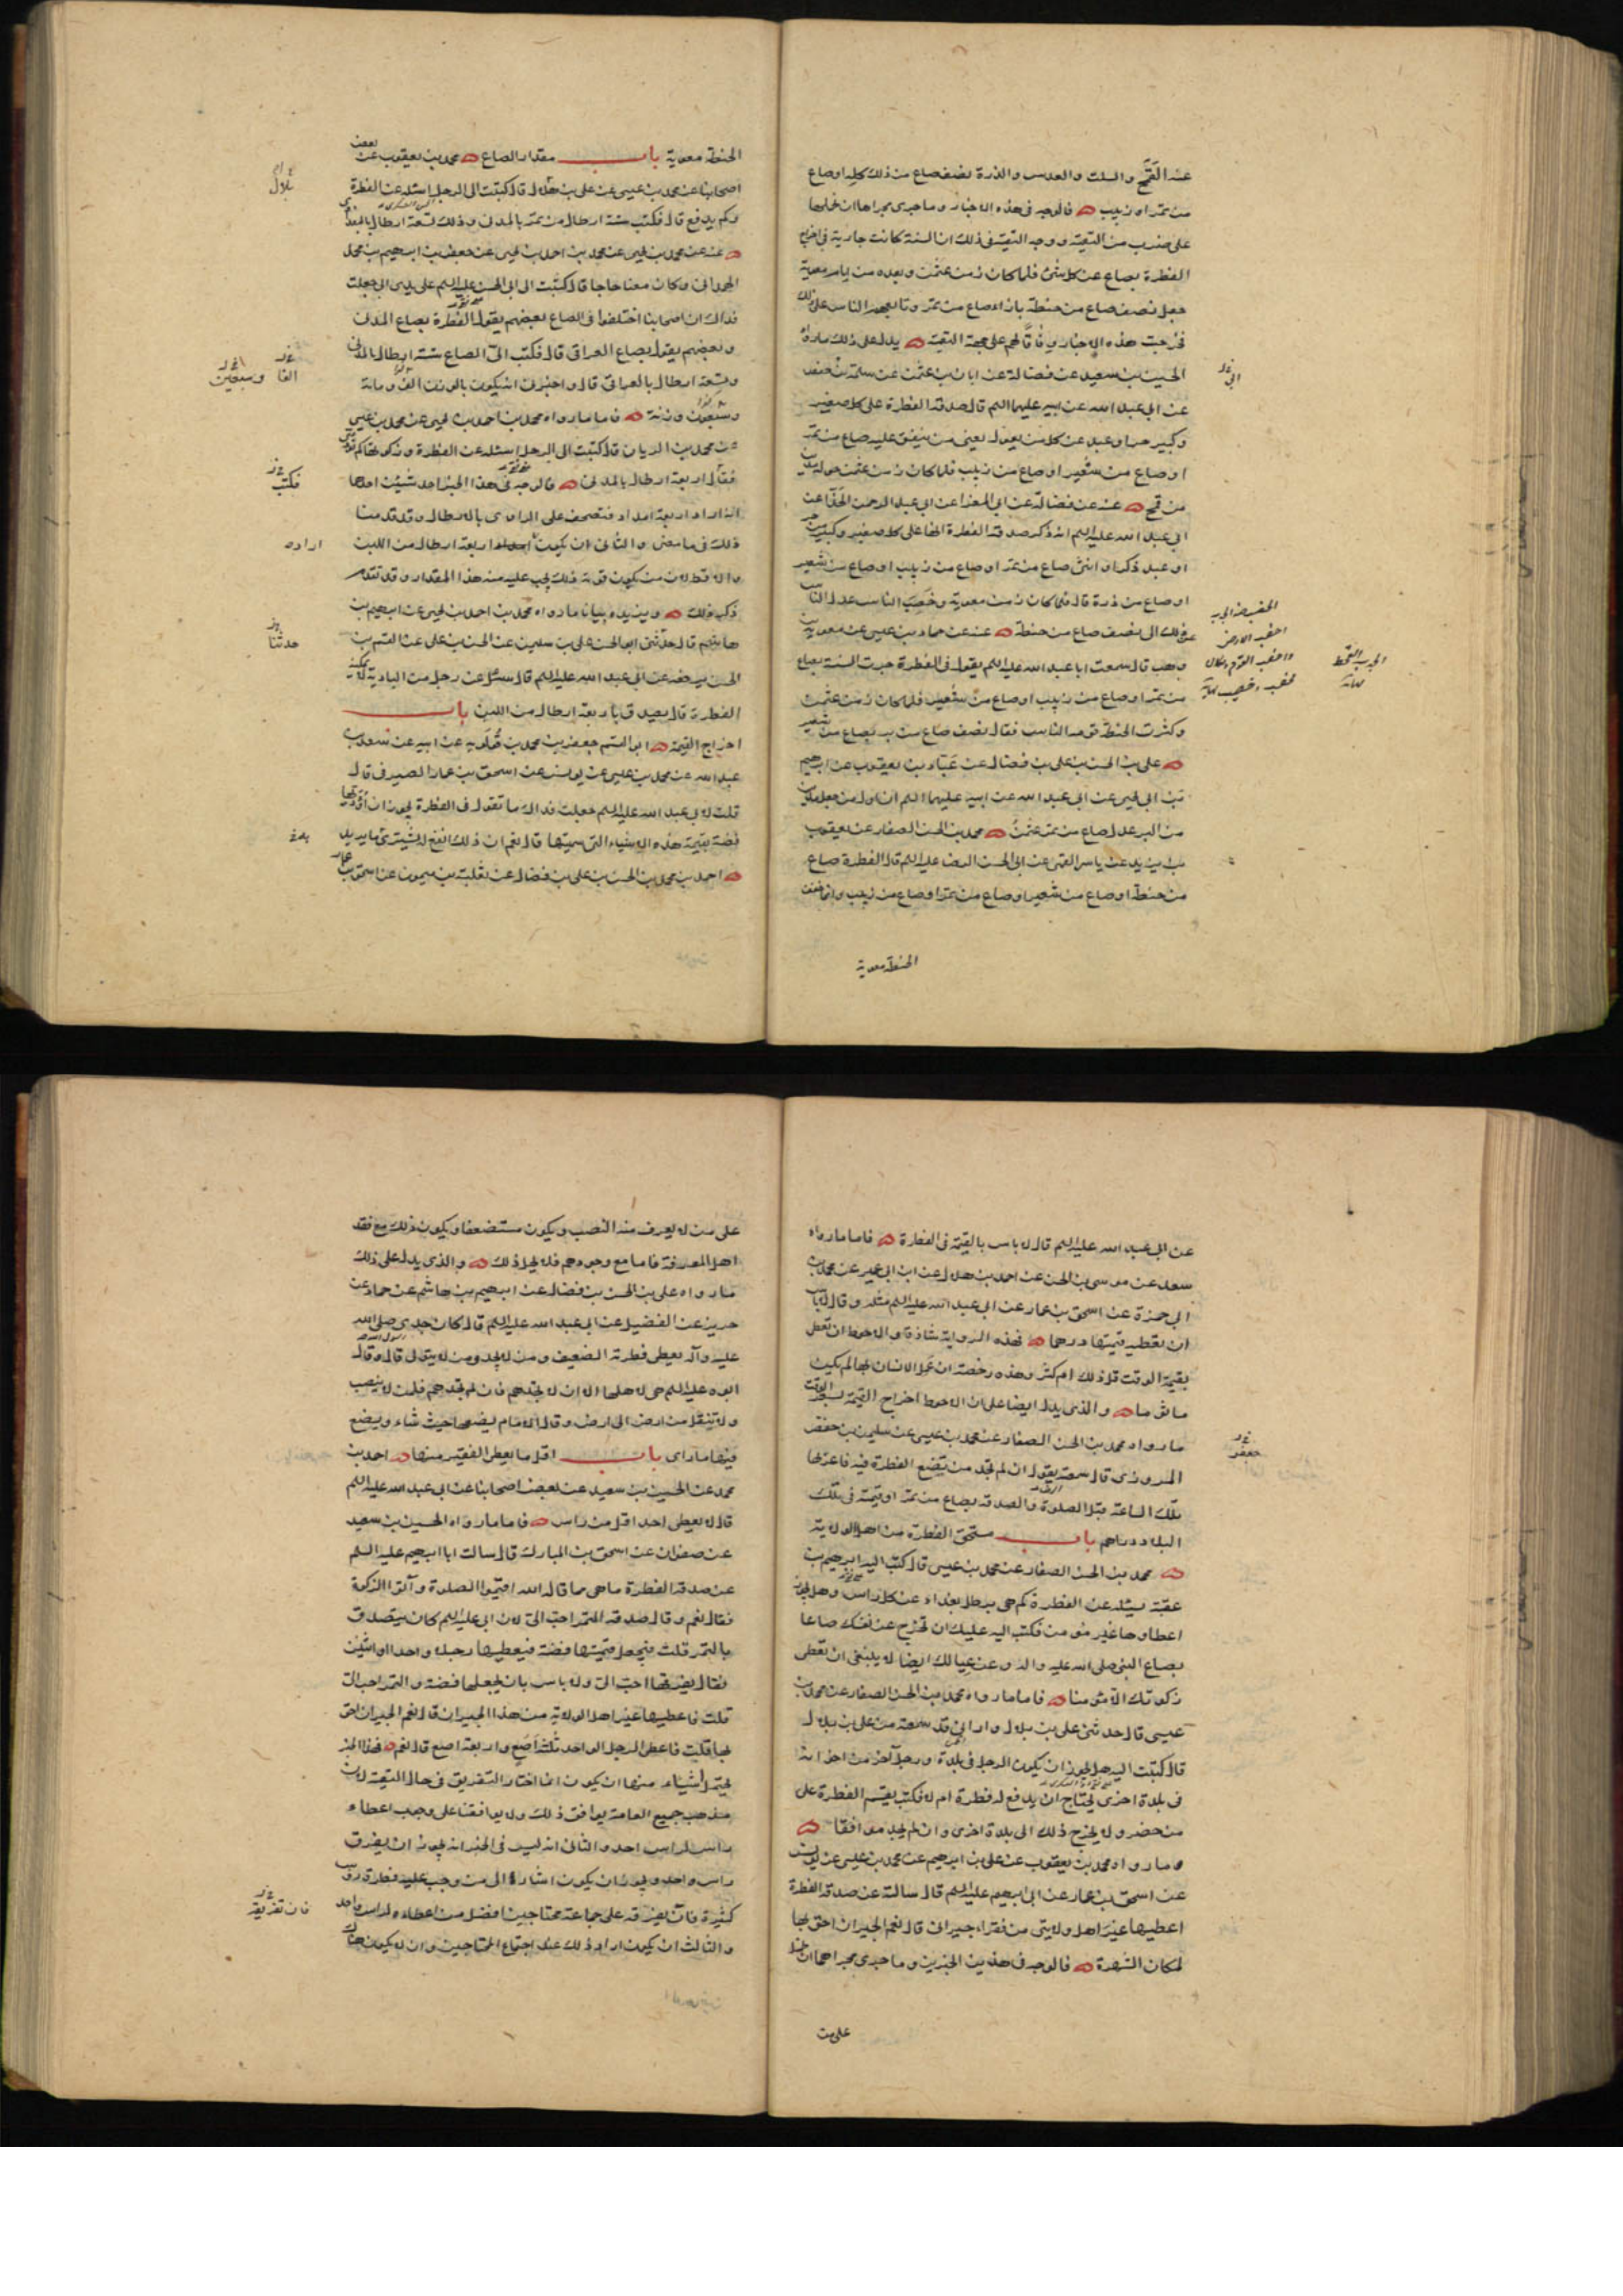 عنه القمح والسلت والعدس والذرة نصف صاع من ذلك كله او صاع
من تمر او زبيب فالوجه فى هذه الاخبار وما جرى مجراها ان نحملها
على ضرب من التقية ووجه التقية فى ذلك ان السنة كانت جارية فى اخراج
الفطرة بصاع عن كل شئ فلما كان زمن عثمن وبعده من ايام معوية
جعل نصف صاع من حنطة بازاء صاع من تمر وتابعهم الناس على ذلك
فخرجت هذه الاخبار وفاقا لهم على جهة التقية يدل على ذلك ما رواه
الحسين بن سعيد عن فضالة عن ابان بن عثمن عن سلمة بن حفص
عن ابى عبد الله عن ابيه عليهما السلم قال صدقة الفطرة على كل صغير
وكبير حر او عبد عن كل من يعول يعنى من ينفق عليه صاع من تمر
او صاع من شعير او صاع من زبيب فلما كان زمن عثمن حوله مدين
من قمح عنه عن فضالة عن ابى المغرا عن ابى عبد الرحمن الحذا عن
ابى عبد الله عليه السلم انه ذكر صدقة الفطرة انها على كل صغير وكبير من حر
او عبد ذكر او انثى صاع من تمر او صاع من زبيب او صاع من شعير
او صاع من ذرة قال فلما كان زمن معوية وخصب الناس عدل الناس
عن ذلك الى نصف صاع من حنطة عنه عن حماد بن عيسى عن معوية بن
وهب قال سمعت ابا عبد الله عليه السلم يقول فى الفطرة جرت السنة بصاع
من تمر او صاع من زبيب او صاع من شعير فلما كان زمن عثمن
وكثرت الحنطة قومه الناس فقال نصف صاع من بر بصاع من شعير
على بن الحسن بن على بن فضال عن عباد بن يعقوب عن ابرهيم
بن ابى يحيى عن ابى عبد الله عن ابيه عليهما السلم ان اول من جعل مدين
من البر عدل صاع من تمر عثمن محمد بن الحسن الصفار عن يعقوب
بن يزيد عن ياسر القمى عن ابى الحسن الرضا عليه السلم قال الفطرة صاع
من حنطة او صاع من شعير او صاع من تمر او صاع من زبيب وانما خفف
الحنطة معوية
الحنطة معوية باب مقدار الصاع محمد بن يعقوب عن بعض
اصحابنا عن محمد بن عيسى عن على بن بلال قال كتبت الى الرجل اسئله عن الفطرة
وكم يدفع قال فكتب ستة ارطال من تمر بالمدنى وذلك تسعة ارطال بالبغدادى
عنه عن محمد بن يحيى عن محمد بن احمد بن يحيى عن جعفر بن ابرهيم بن محمد
الهمدانى وكان معنا حاجا قال كتبت الى ابى الحسن عليه السلم على يدى ابى جعلت
فداك ان اصحابنا اختلفوا فى الصاع بعضهم يقول الفطرة بصاع المدنى
وبعضهم يقول بصاع العراقى قال فكتب الى الصاع ستة ارطال بالمدنى
وتسعة ارطال بالعراقى قال واخبرنى انه يكون بالوزن الف ومائة
وسبعون وزنة فاما ما رواه محمد بن احمد بن يحيى عن محمد بن عيسى
عن محمد بن الريان قال كتبت الى الرجل اسئله عن الفطرة وزكوتها كم تؤدى
فقال اربعة ارطال بالمدنى فالوجه فى هذا الخبر احد شيئين احدهما
انه اراد اربعة امداد فتصحف على الراوى بالارطال وقد قدمنا
ذلك فيما مضى والثانى ان يكون اربعة ارطال من اللبن
والاقط لان من يكون قوته ذلك يجب عليه منه هذا المقدار وقد تقدم
ذكر ذلك ويزيده بيانا ما رواه محمد بن احمد بن يحيى عن ابرهيم بن
هاشم قال حدثنى ابو الحسن على بن سليمن عن الحسن بن على عن القسم بن
الحسن يرفعه عن ابى عبد الله عليه السلم قال سئل عن رجل من البادية لا يمكنه
الفطرة قال يصدق باربعة ارطال من اللبن باب
اخراج القيمة ابو القسم جعفر بن محمد بن قولويه عن ابيه عن سعد بن
عبد الله عن محمد بن عيسى عن يونس عن اسحق بن عمار الصيرفى قال
قلت لابى عبد الله عليه السلم جعلت فداك ما تقول فى الفطرة يجوز ان اؤديها
فضة بقيمة هذه الاشياء التى سميتها قال نعم ان ذلك انفع له يشترى ما يريد
احمد بن محمد بن الحسن بن على بن فضال عن ثعلبة بن ميمون عن اسحق بن عمار
بلال
الفا وسبعين
فكتب
اراده
حدثنا
بلغ
عن ابى عبد الله عليه السلم قال لا باس بالقيمة فى الفطرة فاما ما رواه
سعد عن موسى بن الحسن عن احمد بن هلال عن ابن ابى عمير عن محمد بن
ابى حمزة عن اسحق بن عمار عن ابى عبد الله عليه السلم مثله وقال لا باس
ان تعطيه قيمتها درهما فهذه الرواية شاذة والاحوط ان تعطى
بقيمة الوقت قل ذلك ام كثر وهذه رخصة ان عمل الانسان بها لم يكن
ماثوما والذى يدل ايضا على ان الاحوط اخراج القيمة بسعر الوقت
ما رواه محمد بن الحسن الصفار عن محمد بن عيسى عن سليمن بن حفص
المروزى قال سمعته يقول ان لم تجد من تضع الفطرة فيه فاعزلها
تلك الساعة قبل الصلوة والصدقة بصاع من تمر او قيمته فى تلك
البلاد دراهم باب مستحق الفطرة من اهل الولاية
محمد بن الحسن الصفار عن محمد بن عيسى قال كتب اليه ابرهيم بن
عقبة يسئله عن الفطرة كم هى برطل بغداد عن كل راس وهل يجوز
اعطاوها غير مومن فكتب اليه عليك ان تخرج عن نفسك صاعا
بصاع النبى صلى الله عليه واله وعن عيالك ايضا لا ينبغى ان تعطى
زكوتك الا مومنا فاما ما رواه محمد بن الحسن الصفار عن محمد بن
عيسى قال حدثنى على بن بلال وارانى قد سمعته من على بن بلال
قال كتبت اليه هل يجوز ان يكون الرجل فى بلدة ورجل آخر من اخوانه
فى بلدة اخرى يحتاج ان يدفع له فطرة ام لا فكتب يقسم الفطرة على
من حضر ولا يخرج ذلك الى بلدة اخرى وان لم يجد موافقا
وما رواه محمد بن يعقوب عن على بن ابرهيم عن محمد بن عيسى عن يونس
عن اسحق بن عمار عن ابى ابرهيم عليه السلم قال سالته عن صدقة الفطرة
اعطيها غير اهل ولايتى من فقراء جيرانى قال نعم الجيران احق بها
لمكان الشهرة فالوجه فى هذين الخبرين وما جرى مجراهما ان نحملهما
على من
على من لا يعرف منه النصب ويكون مستضعفا ويكون ذلك مع فقد
اهل المعرفة فاما مع وجودهم فلا يجوز ذلك والذى يدل على ذلك
ما رواه على بن الحسن بن فضال عن ابرهيم بن هاشم عن حماد عن
حريز عن الفضيل عن ابى عبد الله عليه السلم قال كان جدى صلى الله
عليه وآله يعطى فطرته الضعيف ومن لا يجد ومن لا يتولى قال وقال
ابوه عليه السلم هى لاهلها الا ان لا تجدهم فان لم تجدهم فلمن لا ينصب
ولا تنقل من ارض الى ارض وقال الامام يضعها حيث شاء ويصنع
فيها ما راى باب اقل ما يعطى الفقير منها احمد بن
محمد عن الحسين بن سعيد عن بعض اصحابنا عن ابى عبد الله عليه السلم
قال لا يعطى احد اقل من راس فاما ما رواه الحسين بن سعيد
عن صفوان عن اسحق بن المبارك قال سالت ابا ابرهيم عليه السلم
عن صدقة الفطرة ما هى مما قال الله اقيموا الصلوة وآتوا الزكوة
فقال نعم وقال صدقة التمر احب الى لان ابى عليه السلم كان يتصدق
بالتمر قلت فيجعل قيمتها فضة فيعطيها رجلا واحدا او اثنين
فقال يفرقها احب الى ولا باس بان يجعلها فضة والتمر احب الى
قلت فاعطيها غير اهل الولاية من هذا الجيران قال نعم الجيران احق
بها قلت فاعطى الرجل الواحد ثلثة اصع واربعة اصع قال نعم فهذا الخبر
يحتمل اشياء منها ان يكون انما اختار التفريق فى حال التقية لان
مذهب جميع العامة يوافق ذلك ولا يوافقنا على وجوب اعطاء
راس لراس احد والثانى انه ليس فى الخبر انه يجوز ان يفرق
راس واحد ويجوز ان يكون اشارة الى من وجب عليه فطرة روس
كثيرة فان تفرقه على جماعة محتاجين افضل من اعطاءه لراس واحد
والثالث ان يكون اراد ذلك عند اجتماع المحتاجين وان لا يكون هناك
جعفر
فان تفريقه